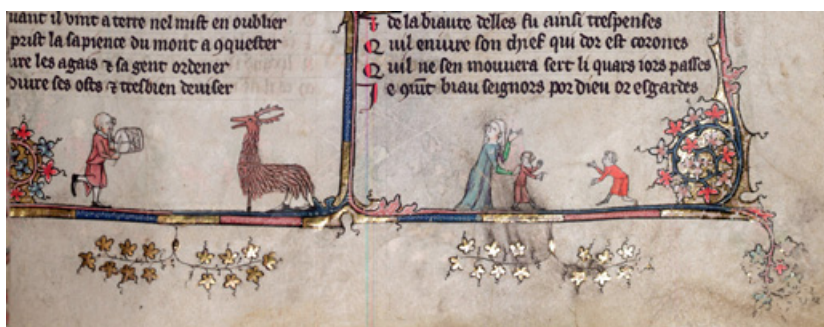 uant il vint a terre nel mist en oublier
prist la sapience du mont a ꝯquester
ire les agais ⁊ sa gent ordener
duire ses osts ⁊ tresbien deuiser
de la biaute delles fu ainsi trespenses
Q uil enuire son chief qui dor est corones
Q uil ne sen mouuera sert li quars iors passes
biau seignors por dieu or esgardes